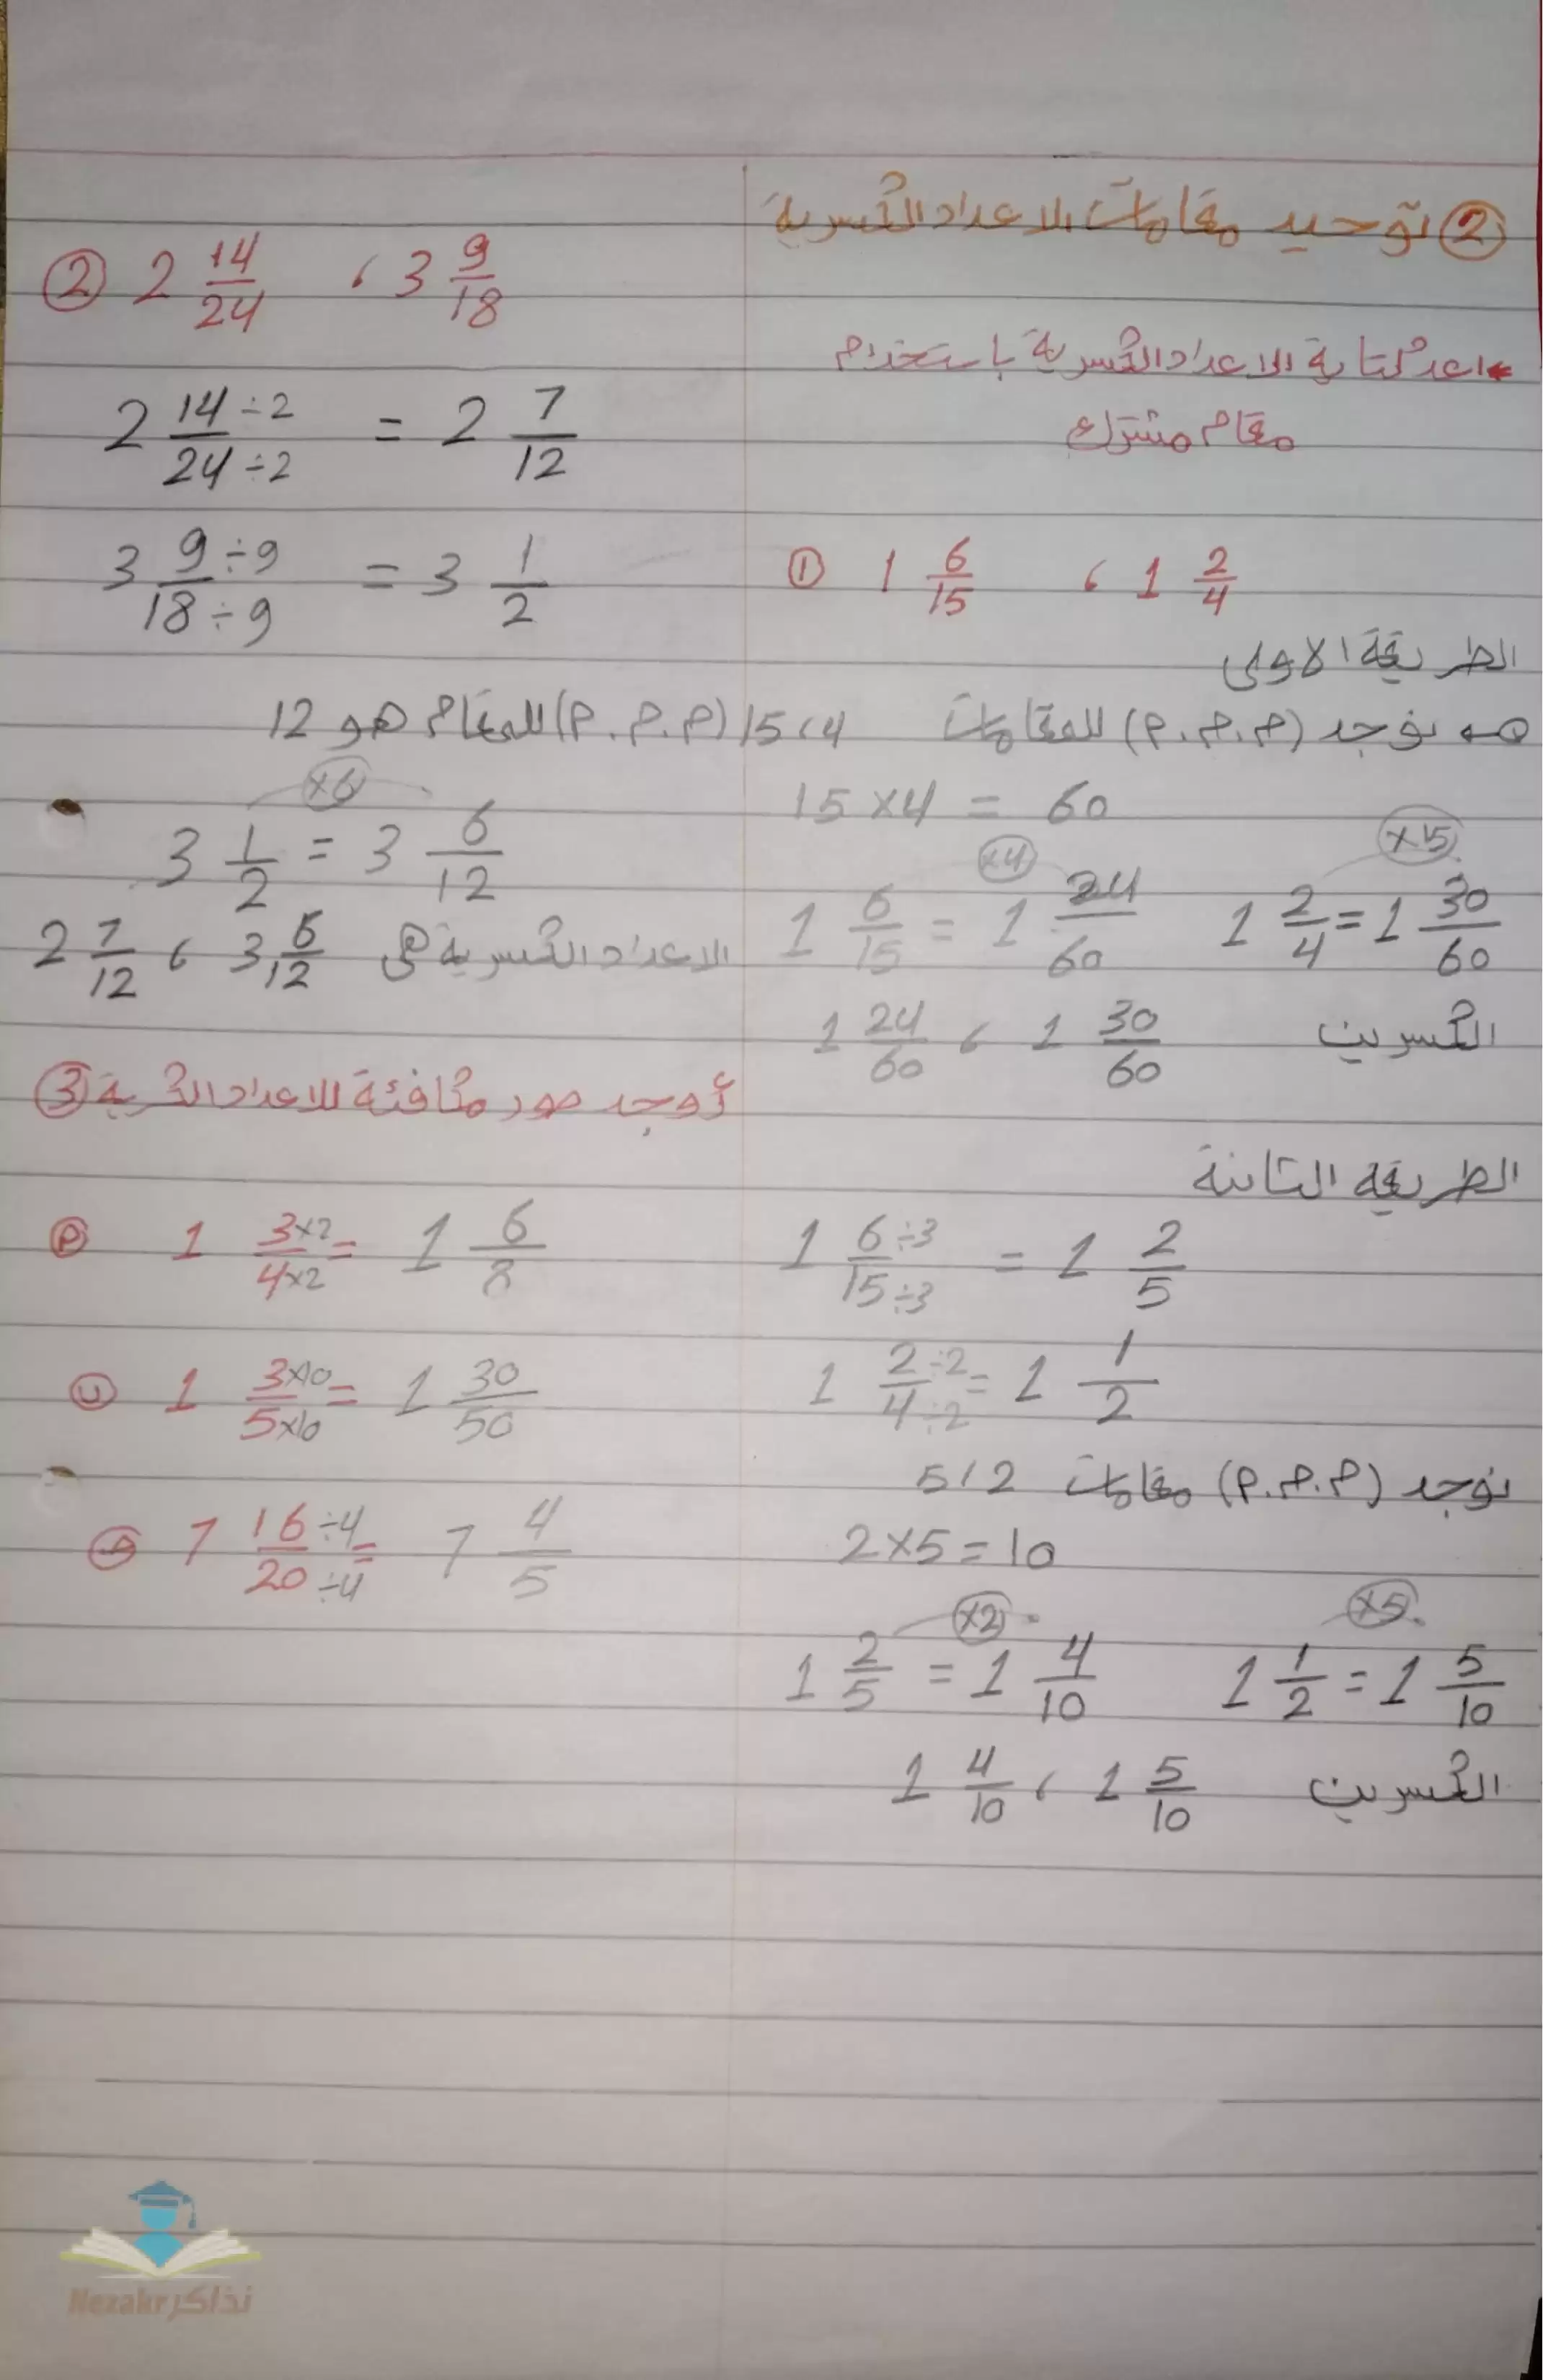 ② توحيد مقامات الاعداد الكسرية
اعد كتابة الاعداد الكسرية باستخدام
مقام مشترك
① 1 6/15 ، 1 2/4
الطريقة الاولى
نوجد (م.م.م) للمقامات 15،4
15×4 = 60
×4 ×15
1 6/15 = 1 24/60 1 2/4 = 1 30/60
الكسرين 1 24/60 ، 1 30/60
الطريقة التانية
1 6÷3/15÷3 = 1 2/5
1 2÷2/4÷2 = 1 1/2
نوجد (م.م.م) مقامات 5،2
2×5=10
×2 ×5
1 2/5 = 1 4/10 1 1/2 = 1 5/10
الكسرين 1 4/10 ، 1 5/10
② 2 14/24 ، 3 9/18
2 14÷2/24÷2 = 2 7/12
3 9÷9/18÷9 = 3 1/2
(م.م.م) للمقام هو 12
×6
3 1/2 = 3 6/12
الاعداد الكسرية هى 2 7/12 ، 3 6/12
③ أوجد صور مكافئة للاعداد الكسرية
م 1 3×2/4×2 = 1 6/8
ب 1 3×10/5×10 = 1 30/50
ج 7 16÷4/20÷4 = 7 4/5
Nezakr نذاكر